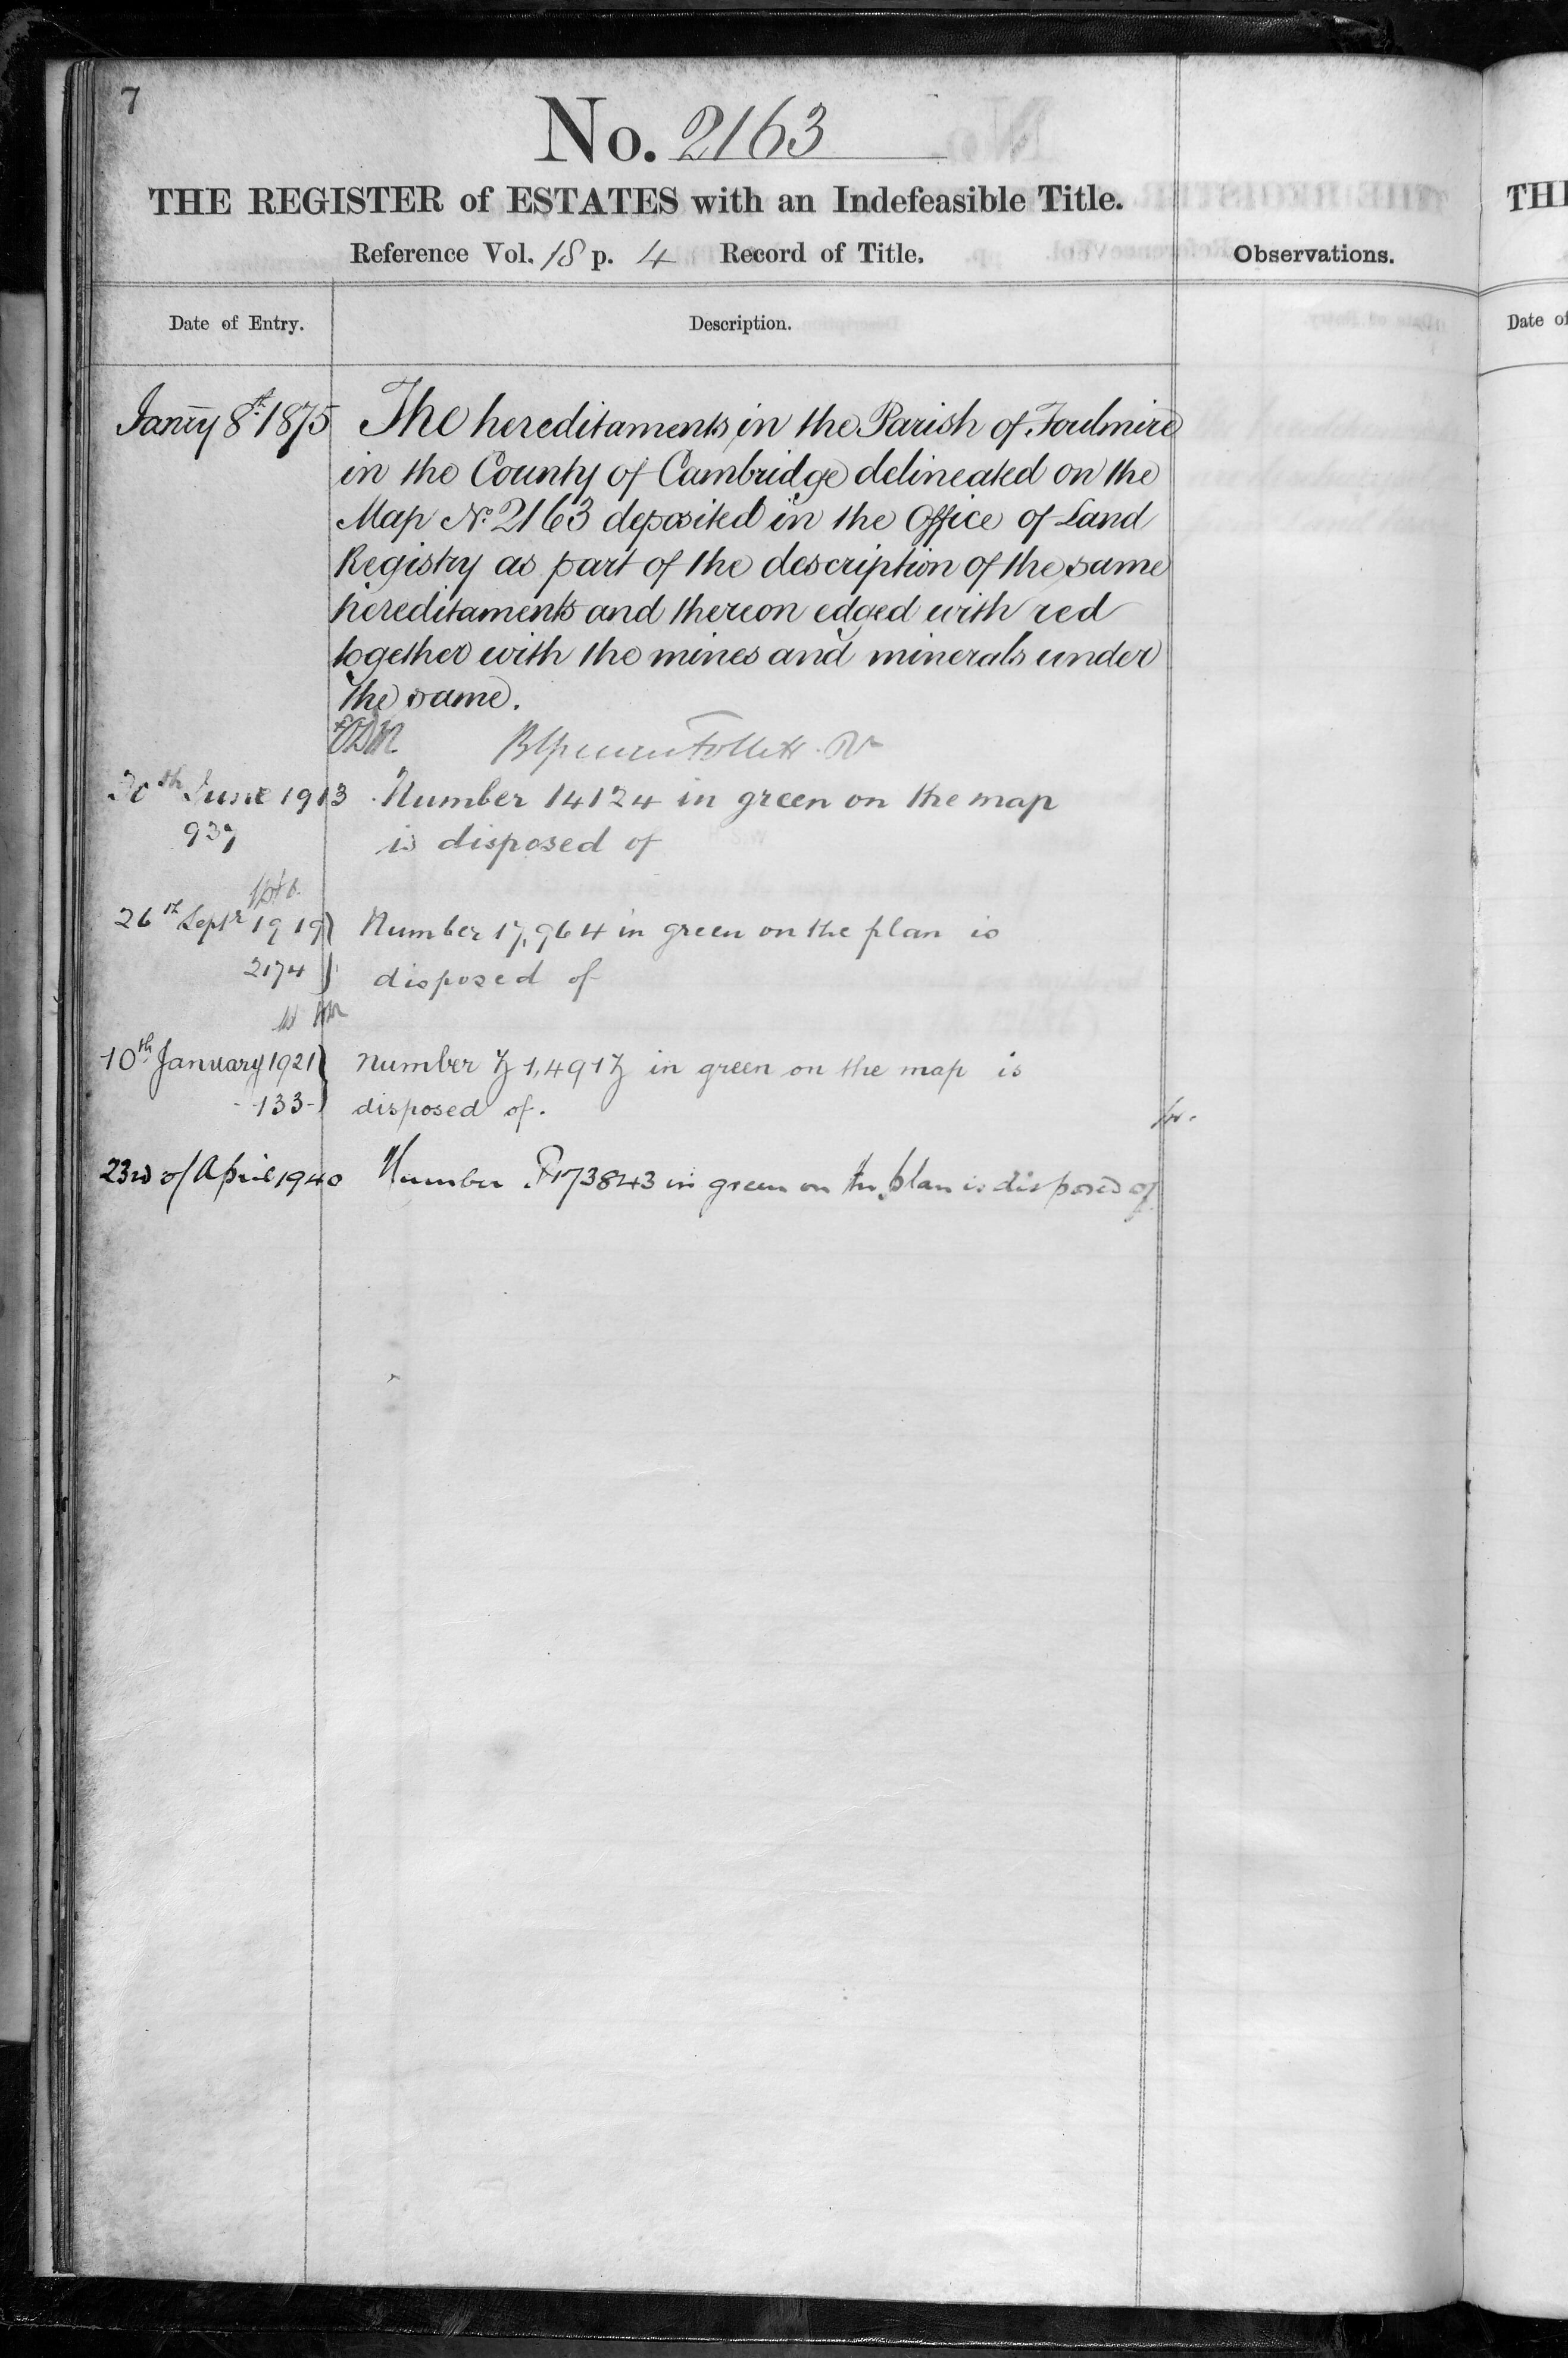 7
No. 2163
THE REGISTER of ESTATES with an Indefeasible Title.
Reference Vol. 18 p. 4 Record of Title.
Observations.
Date of Entry.
Description.
Janry 8th 1875 The hereditaments in the Parish of Foulmire
in the County of Cambridge delineated on the
Map No. 2163 deposited in the Office of Land
Registry as part of the description of the same
hereditaments and thereon edged with red
together with the mines and minerals under
the same.
Follett
30th June 1913 Number 14124 in green on the map
937 is disposed of
26th Septr 1919 Number 17,964 in green on the plan is
2174 disposed of
10th January 1921 Number 71,4917 in green on the map is
-133- disposed of.
23rd of April 1940 Number P173843 in green on the plan is disposed of
THE
Date of